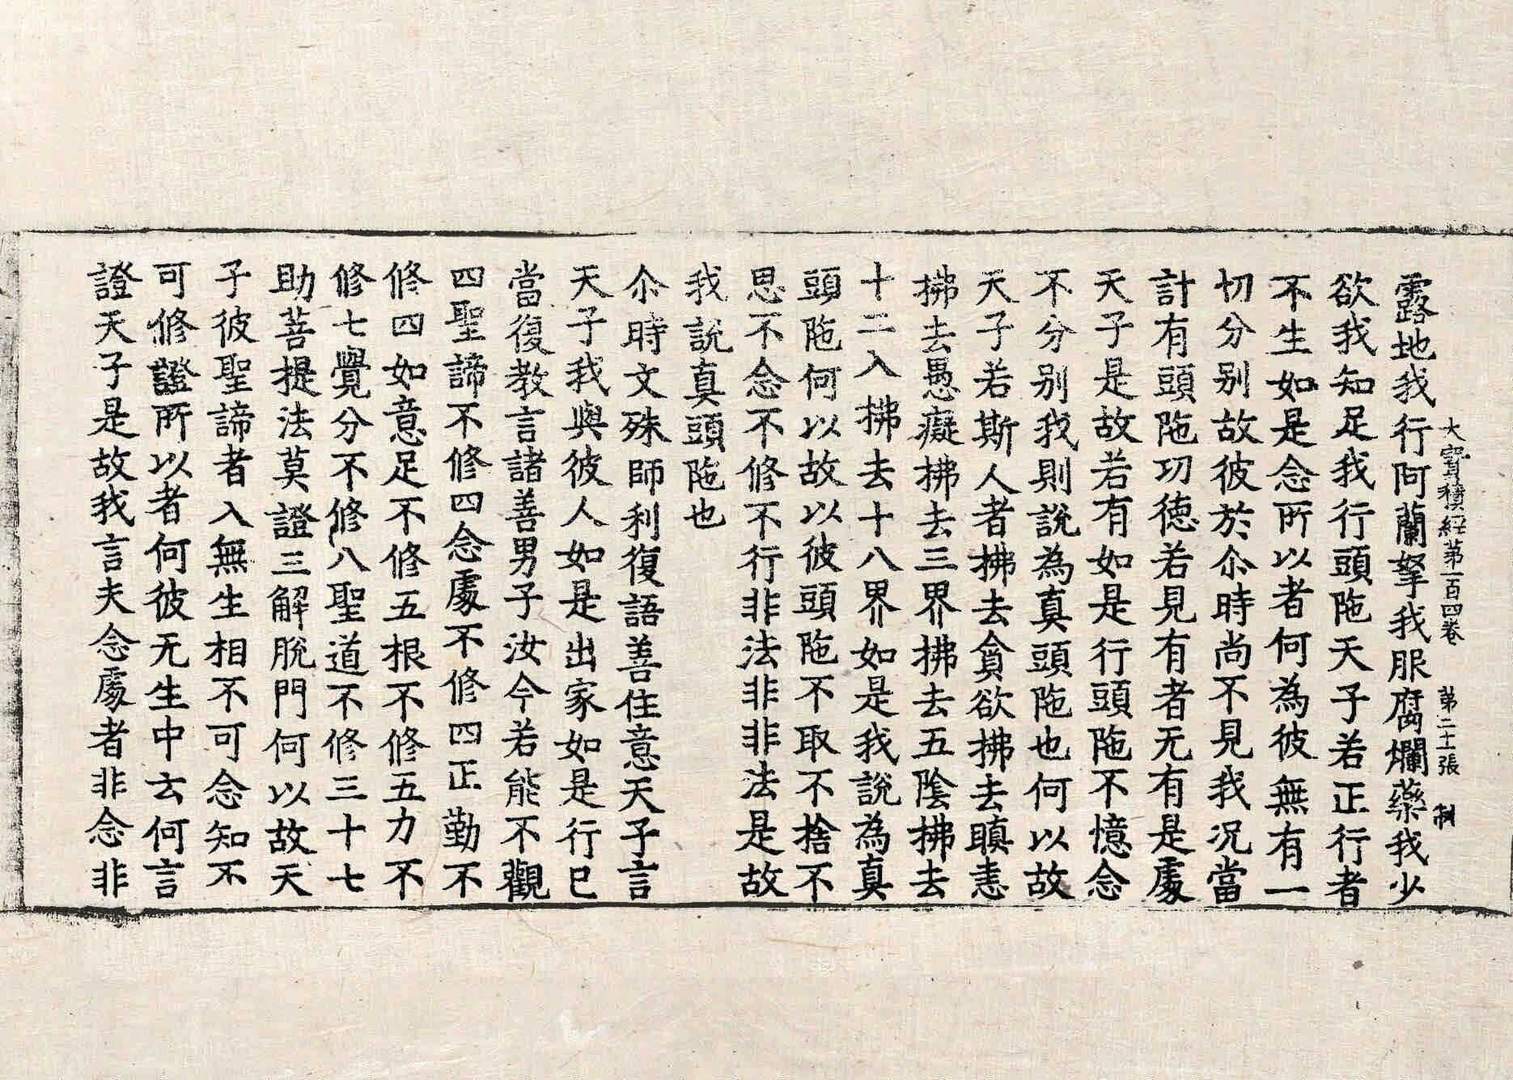 大寶積經第一百四卷　第二十張　制
露地我行阿蘭拏我服腐爛藥我少
欲我知足我行頭陁天子若正行者
不生如是念所以者何為彼無有一
切分别故彼於尒時尚不見我况當
計有頭陁功徳若見有者无有是處
天子是故若有如是行頭陁不憶念
不分别我則說為真頭陁也何以故
天子若斯人者拂去貪欲拂去瞋恚
拂去愚癡拂去三界拂去五陰拂去
十二入拂去十八界如是我說為真
頭陁何以故以彼頭陁不取不捨不
思不念不修不行非法非非法是故
我說真頭陁也
尒時文殊師利復語善住意天子言
天子我與彼人如是出家如是行已
當復教言諸善男子汝今若能不觀
四聖諦不修四念處不修四正勤不
修四如意足不修五根不修五力不
修七覺分不修八聖道不修三十七
助菩提法莫證三解脫門何以故天
子彼聖諦者入無生相不可念知不
可修證所以者何彼无生中云何言
證天子是故我言夫念處者非念非